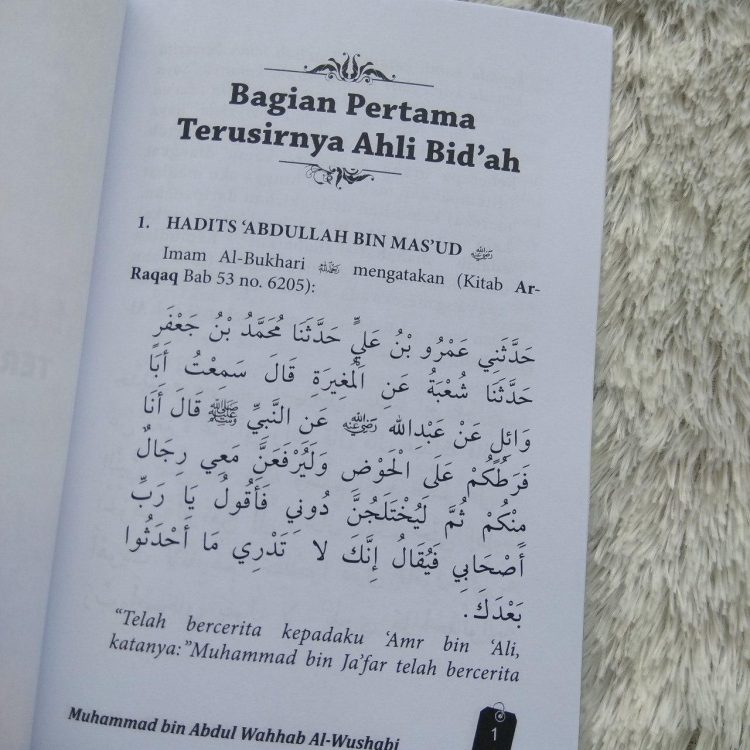 Bagian Pertama
Terusirnya Ahli Bid’ah
1. HADITS ‘ABDULLAH BIN MAS’UD رضي الله عنه
Imam Al-Bukhari رحمه الله mengatakan (Kitab Ar-
Raqaq Bab 53 no. 6205):
حَدَّثَنِي عَمْرُو بْنُ عَلِيٍّ حَدَّثَنَا مُحَمَّدُ بْنُ جَعْفَرٍ
حَدَّثَنَا شُعْبَةُ عَنِ الْمُغِيرَةِ قَالَ سَمِعْتُ أَبَا
وَائِلٍ عَنْ عَبْدِالله رضي الله عنه عَنِ النَّبِيِّ ﷺ قَالَ أَنَا
فَرَطُكُمْ عَلَى الْحَوْضِ وَلَيُرْفَعَنَّ مَعِي رِجَالٌ
مِنْكُمْ ثُمَّ لَيُخْتَلَجُنَّ دُونِي فَأَقُولُ يَا رَبِّ
أَصْحَابِي فَيُقَالُ إِنَّكَ لا تَدْرِي مَا أَحْدَثُوا
بَعْدَكَ.
“Telah bercerita kepadaku ‘Amr bin ‘Ali,
katanya:”Muhammad bin Ja’far telah bercerita
Muhammad bin Abdul Wahhab Al-Wushabi
1